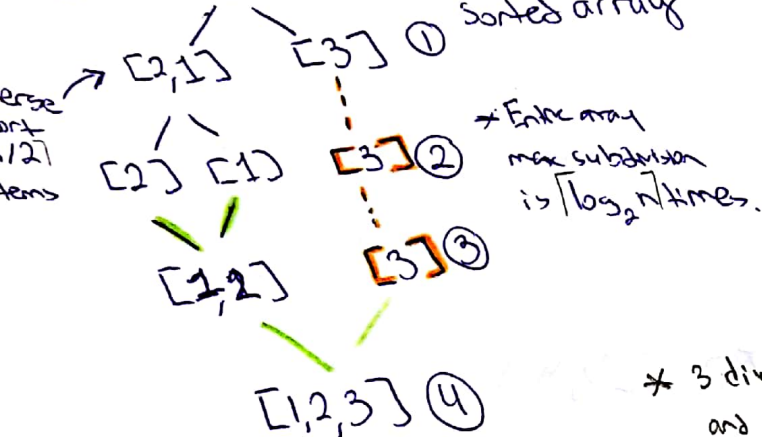 Sorted array
[2,1] [3] ①
erse
ort
/2⌉
tems
[2] [1] [3] ②
* Entire array
max subdivision
is ⌈log₂n⌉ times.
[1,2] [3] ③
[1,2,3] ④
* 3 div
and